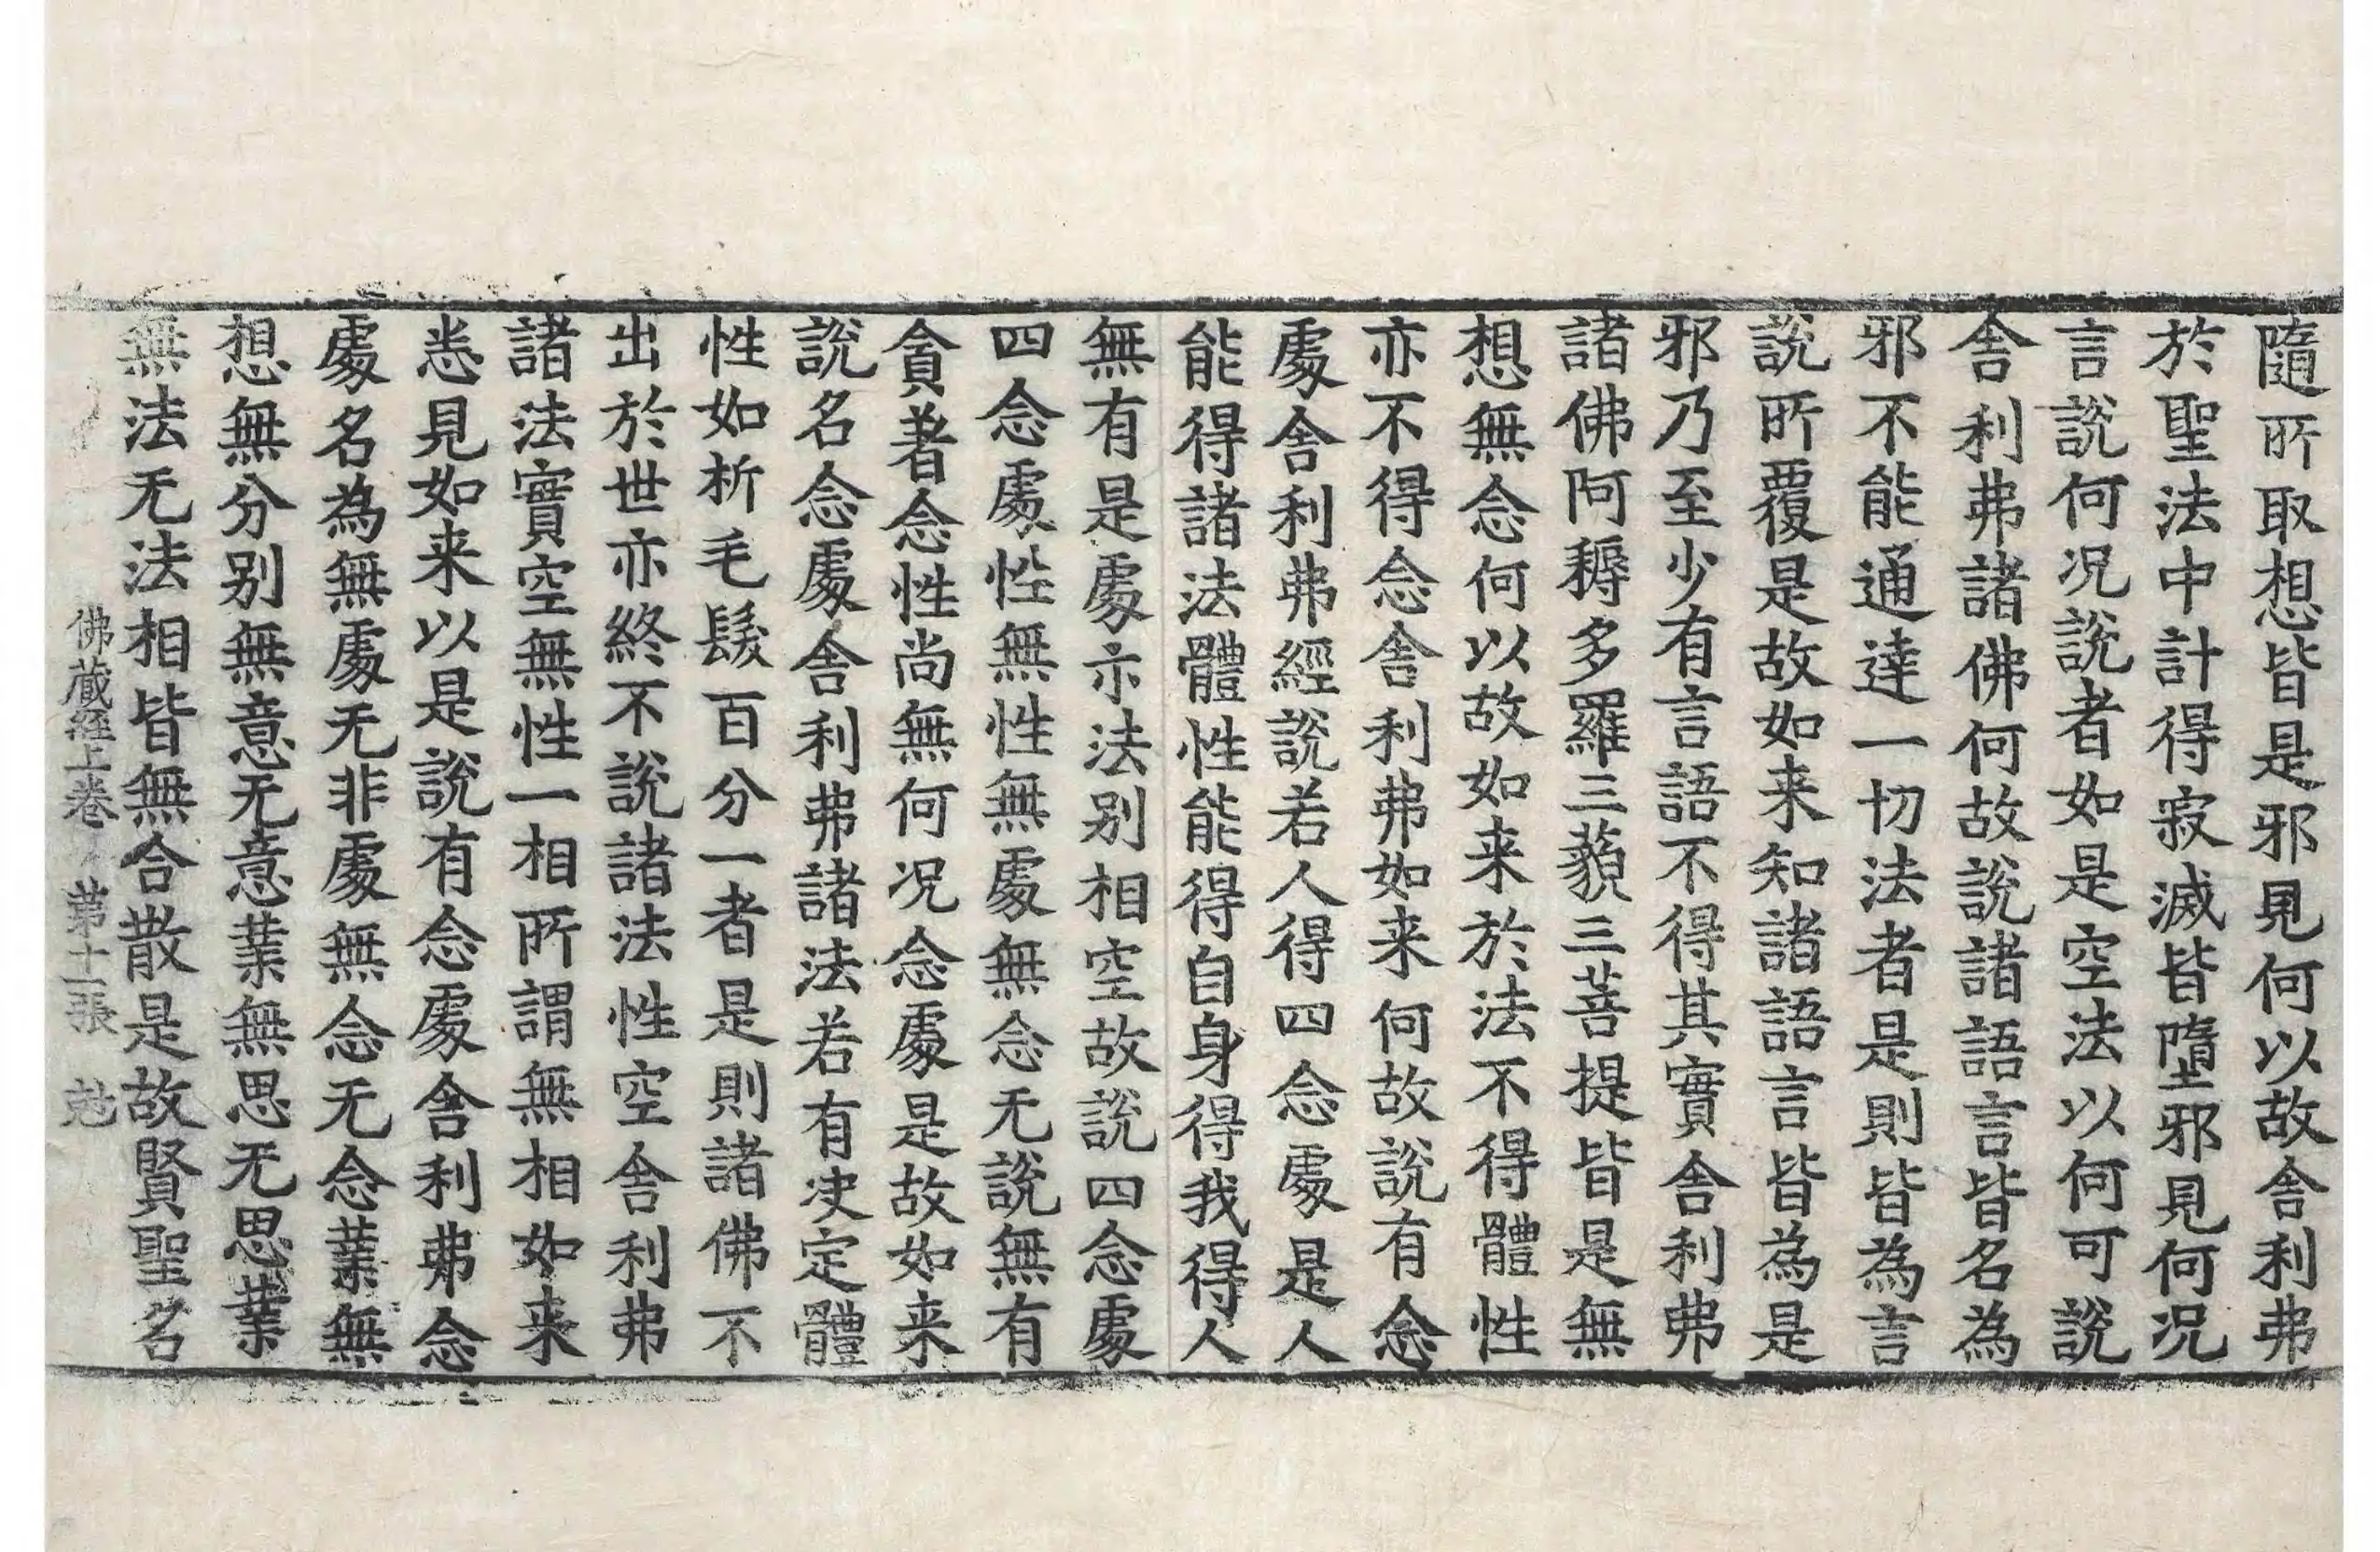 隨所取想皆是邪見何以故舍利弗
於聖法中計得寂滅皆墮邪見何况
言說何况說者如是空法以何可說
舍利弗諸佛何故說諸語言皆名為
邪不能通達一切法者是則皆為言
說所覆是故如来知諸語言皆為是
邪乃至少有言語不得其實舍利弗
諸佛阿耨多羅三藐三菩提皆是無
想無念何以故如来於法不得體性
亦不得念舍利弗如来何故說有念
處舍利弗經說若人得四念處是人
能得諸法體性能得自身得我得人
無有是處亦法别相空故說四念處
四念處性無性無處無念无說無有
貪著念性尚無何况念處是故如来
說名念處舍利弗諸法若有决定體
性如析毛髮百分一者是則諸佛不
出於世亦終不說諸法性空舍利弗
諸法實空無性一相所謂無相如来
悉見如来以是說有念處舍利弗念
處名為無處无非處無念无念業無
想無分别無意无意業無思无思業
無法无法相皆無合散是故賢聖名
佛藏經上卷 第十一張 尅